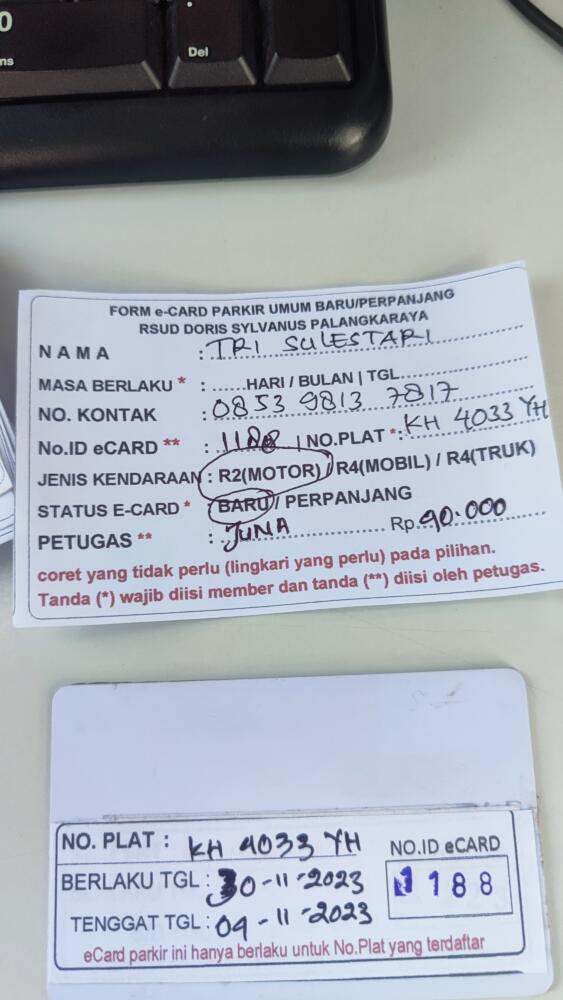 0
ns
Del
FORM e-CARD PARKIR UMUM BARU/PERPANJANG
RSUD DORIS SYLVANUS PALANGKARAYA
NAMA : TRI SULESTARI
MASA BERLAKU * : ......HARI / BULAN | TGL.
NO. KONTAK : 0853 9813 7817
No.ID eCARD ** : 1188 | NO.PLAT * : KH 4033 YH
JENIS KENDARAAN : R2(MOTOR) / R4(MOBIL) / R4(TRUK)
STATUS E-CARD * : BARU / PERPANJANG
PETUGAS ** : JUNA Rp. 90.000
coret yang tidak perlu (lingkari yang perlu) pada pilihan.
Tanda (*) wajib diisi member dan tanda (**) diisi oleh petugas.
NO. PLAT : KH 4033 YH
NO.ID eCARD
BERLAKU TGL : 30-11-2023
1188
TENGGAT TGL : 04-11-2023
eCard parkir ini hanya berlaku untuk No.Plat yang terdaftar